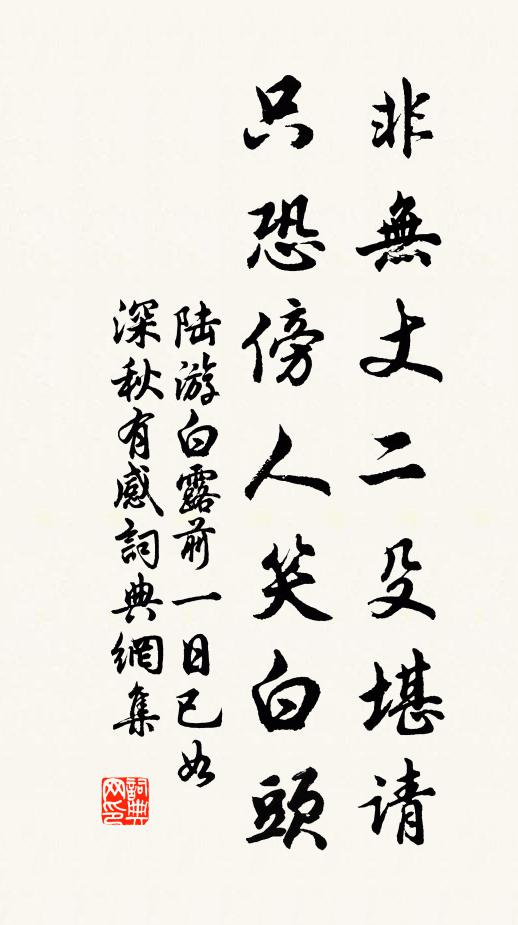 非無丈二殳堪请
只恐傍人笑白頭
陆游白露前一日已如
深秋有感詞典網集
詞典
网印